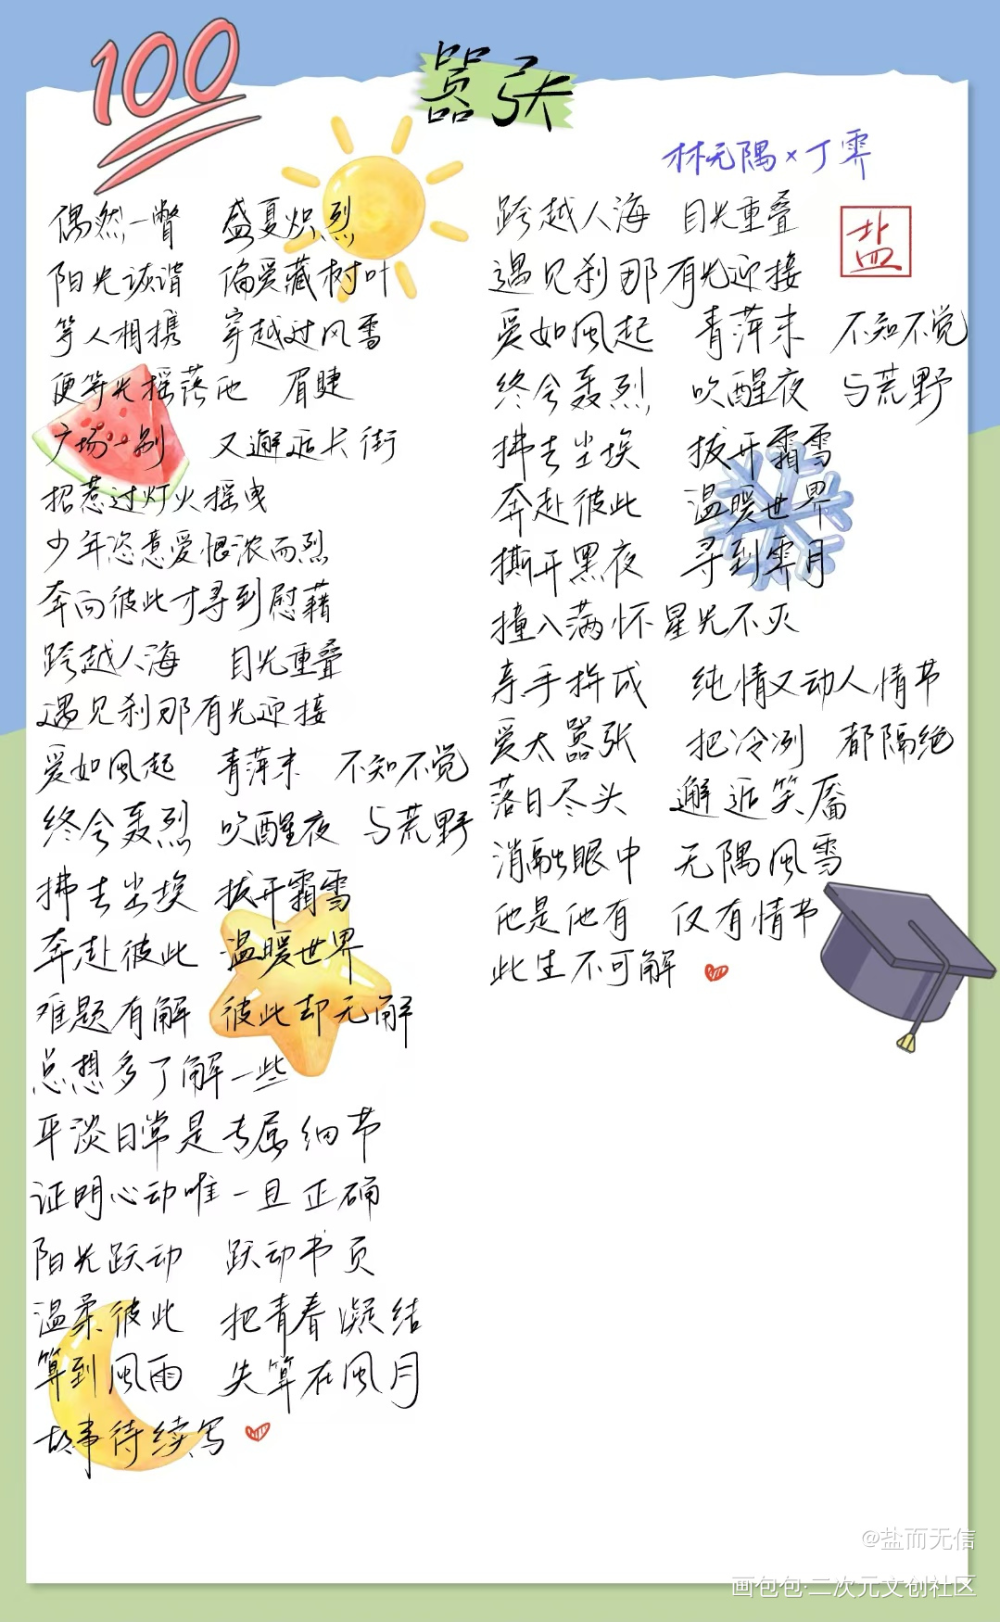 100
嚣张
林无隅×丁霁
盐
偶然一瞥 盛夏炽烈
阳光诙谐 偏爱藏树叶
等人相携 穿越过风雪
便等光摇落他 眉睫
广场一别 又邂逅长街
招惹过灯火摇曳
少年恣意爱恨浓而烈
奔向彼此才寻到慰藉
跨越人海 目光重叠
遇见刹那有光迎接
爱如风起 青萍末 不知不觉
终会轰烈 吹醒夜 与荒野
拂去尘埃 拨开霜雪
奔赴彼此 温暖世界
难题有解 彼此却无解
总想多了解一些
平淡日常是专属细节
证明心动唯一且正确
阳光跃动 跃动书页
温柔彼此 把青春凝结
算到风雨 失算在风月
故事待续写
跨越人海 目光重叠
遇见刹那有光迎接
爱如风起 青萍末 不知不觉
终会轰烈 吹醒夜 与荒野
拂去尘埃 拨开霜雪
奔赴彼此 温暖世界
撕开黑夜 寻到霁月
撞入满怀星光不灭
亲手拼成 纯情又动人情节
爱太嚣张 把冷冽 都隔绝
落日尽头 邂逅笑靥
消融眼中 无隅风雪
他是他有 仅有情节
此生不可解
@盐而无信
画包包·二次元文创社区